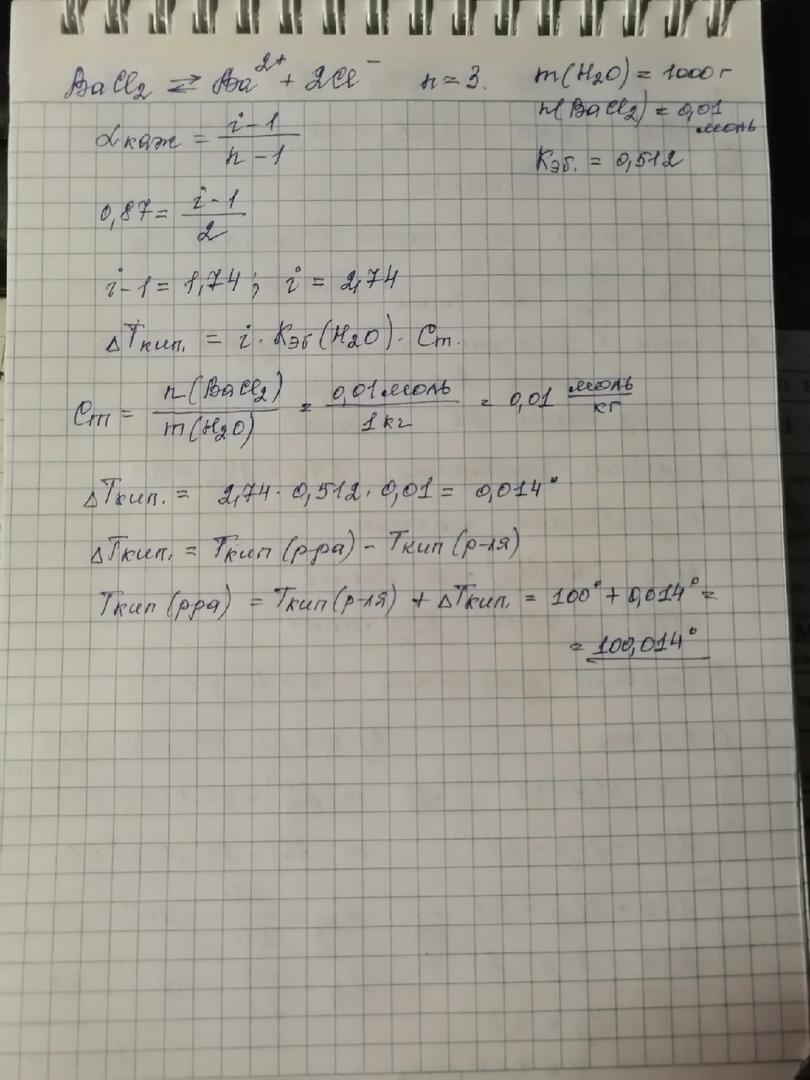 BaCl₂ ⇄ Ba²⁺ + 2Cl⁻ n = 3. m(H₂O) = 1000 г
n(BaCl₂) = 0,01 моль
αкаж = (i - 1)/(n - 1)
Kэб. = 0,512
0,87 = (i - 1)/2
i - 1 = 1,74; i = 2,74
ΔTкип. = i · Kэб(H₂O) · Cm.
Cm = n(BaCl₂)/m(H₂O) = 0,01 моль/1 кг = 0,01 моль/кг
ΔTкип. = 2,74 · 0,512 · 0,01 = 0,014°
ΔTкип. = Tкип(р-ра) - Tкип(р-ля)
Tкип(рра) = Tкип(р-ля) + ΔTкип. = 100° + 0,014° =
= 100,014°